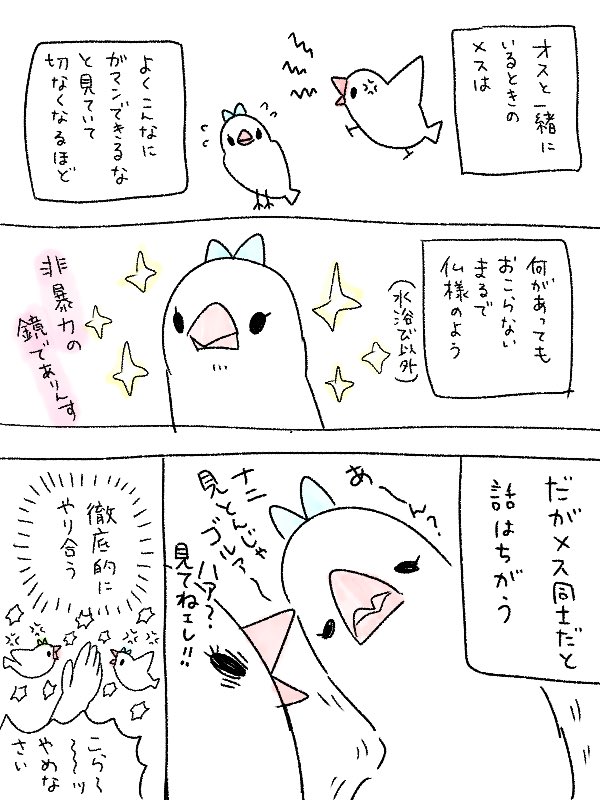 オスと一緒に
いるときの
メスは
よくこんなに
ガマンできるな
と見ていて
切なくなるほど
何があっても
おこらない
まるで
仏様のよう
(水浴び以外)
非暴力の
鏡でありんす
だがメス同士だと
話はちがう
あ〜ん?
ナニ
見とんじゃ
ゴルァー
ハァ?
見てねェし!!
徹底的に
やり合う
こら〜
〜〜ッ
やめな
さい